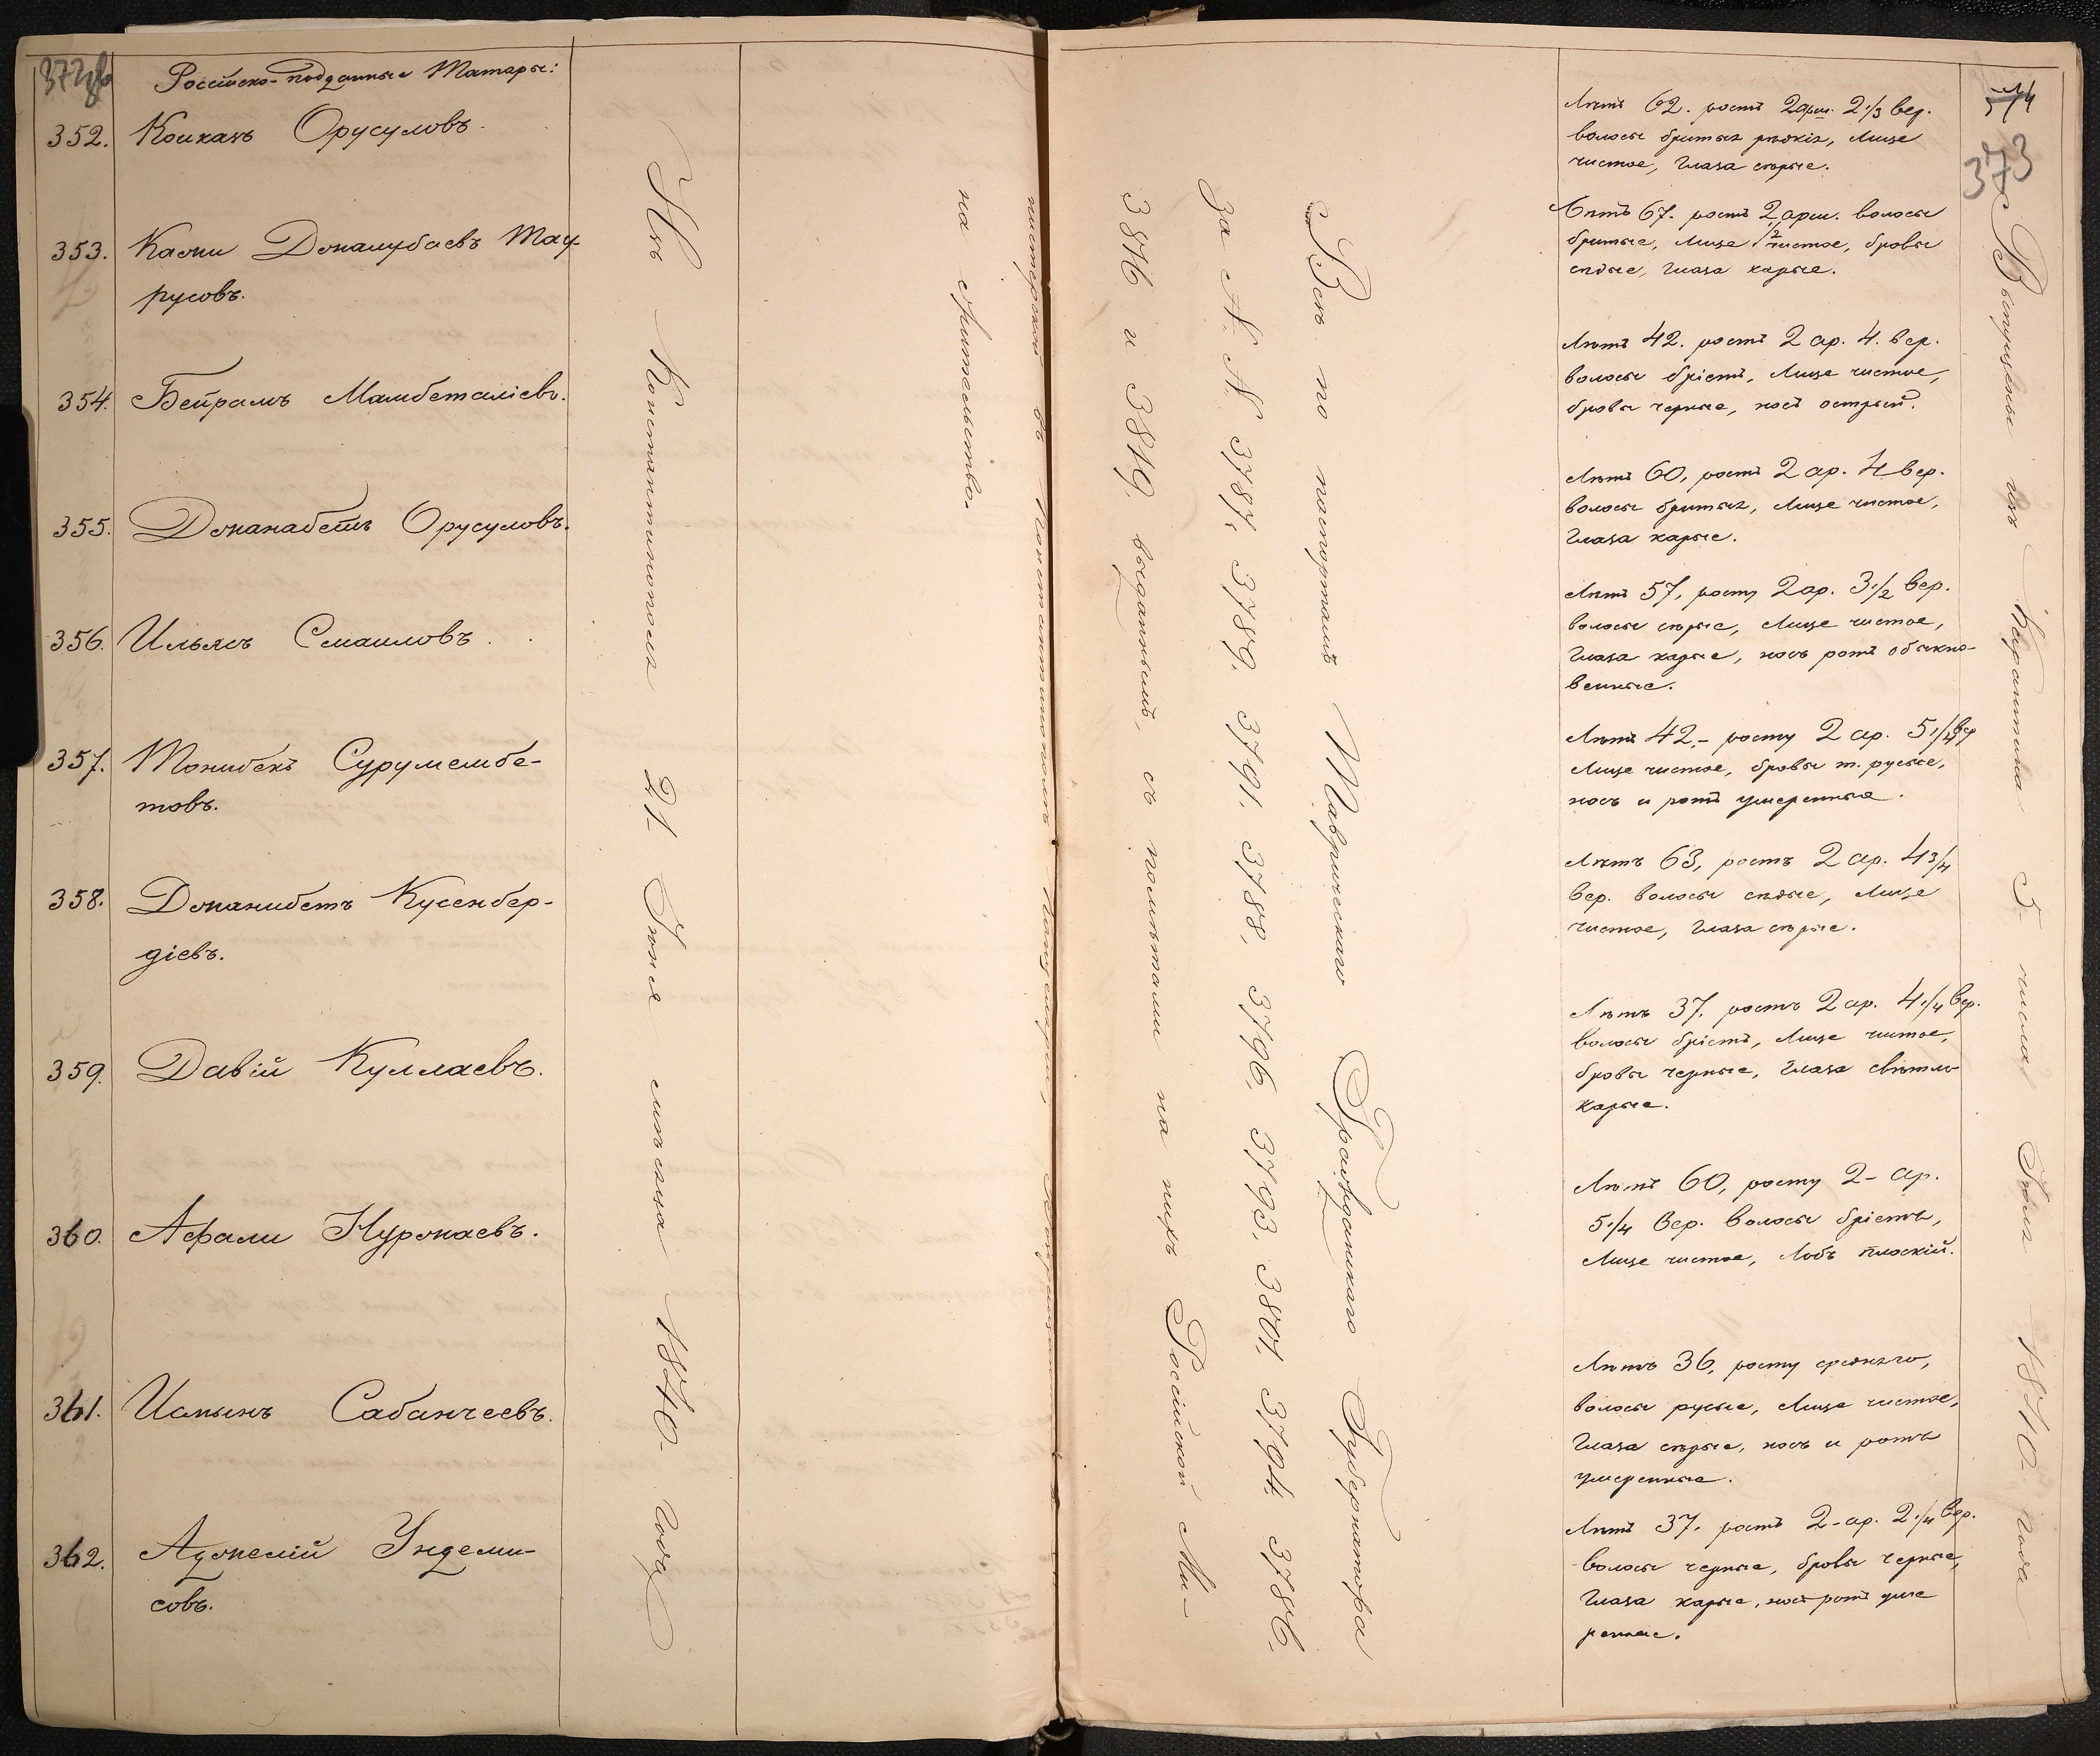 Россійско-подданные Татары:
352. Коикать Орусуловъ.
353.
русовъ.
354. Бейрамъ Мамбеталіевъ.
355. Джанабетъ Орусуловъ.
356. Ильясъ Смаиловъ.
357. Тонибекъ Сурумембе-
товъ.
358. Джанибетъ Кусенбер-
діевъ.
359. Давій Куллаевъ.
360. Афали Нуржаевъ.
361. Сабанчеевъ.
362. Ундеми-
совъ.
Изъ Константинополя 21 Іюня мѣсяца 1840 года
на жительство.
нистерскои въ Константинополѣ
Всѣ по паспортамъ Таврическаго Гражданскаго Губернатора
за № № 3787, 3789, 3791, 3788, 3796, 3793, 3801, 3794, 3786,
3816 и 3819, выданнымъ, съ помѣтами на нихъ Россійской Ми-
373
Лѣтъ 62. ростъ 2 арш. 2 1/3 вер.
волосы бритыя рѣдкія, Лице
чистое, Глаза сѣрые.
Лѣтъ 67. ростъ 2 1/2 арш. волосы
бритые, Лице чистое, бровы
сѣдые, Глаза карые.
Лѣтъ 42. ростъ 2 ар. 4. вер.
волосы брістъ, Лице чистое,
бровы черные, носъ острый.
Лѣтъ 60, ростъ 2 ар. 4 вер.
волосы бритыя, Лице чистое,
Глаза карые.
Лѣтъ 57, росту 2 ар. 3 1/2 вер.
волосы сѣрые, Лице чистое,
Глаза карые, носъ ротъ обыкно-
венные.
Лѣтъ 42,- росту 2 ар. 5 1/4 вер
Лице чистое, бровы т. русые,
носъ и ротъ умеренные.
Лѣтъ 63, ростъ 2 ар. 4 3/4
вер. волосы сѣдые, Лице
чистое, Глаза сѣрые.
Лѣтъ 37. ростъ 2 ар. 4 1/4 вер.
волосы брістъ, Лице чистое,
бровы черные, Глаза свѣтло
карые.
Лѣтъ 60, росту 2- ар.
5 1/4 вер. волосы брістъ,
Лице чистое, Лобъ плоскій.
Лѣтъ 36, росту средняго,
волосы русые, Лице чистое,
Глаза сѣрые, носъ и ротъ
умеренные.
Лѣтъ 37. ростъ 2-ар. 2 1/4 вер.
волосы черные, бровы черные,
Глаза карые, носъ ротъ уме
ренные.
Выпущены изъ Карантина 5 числа Іюля 1840 года